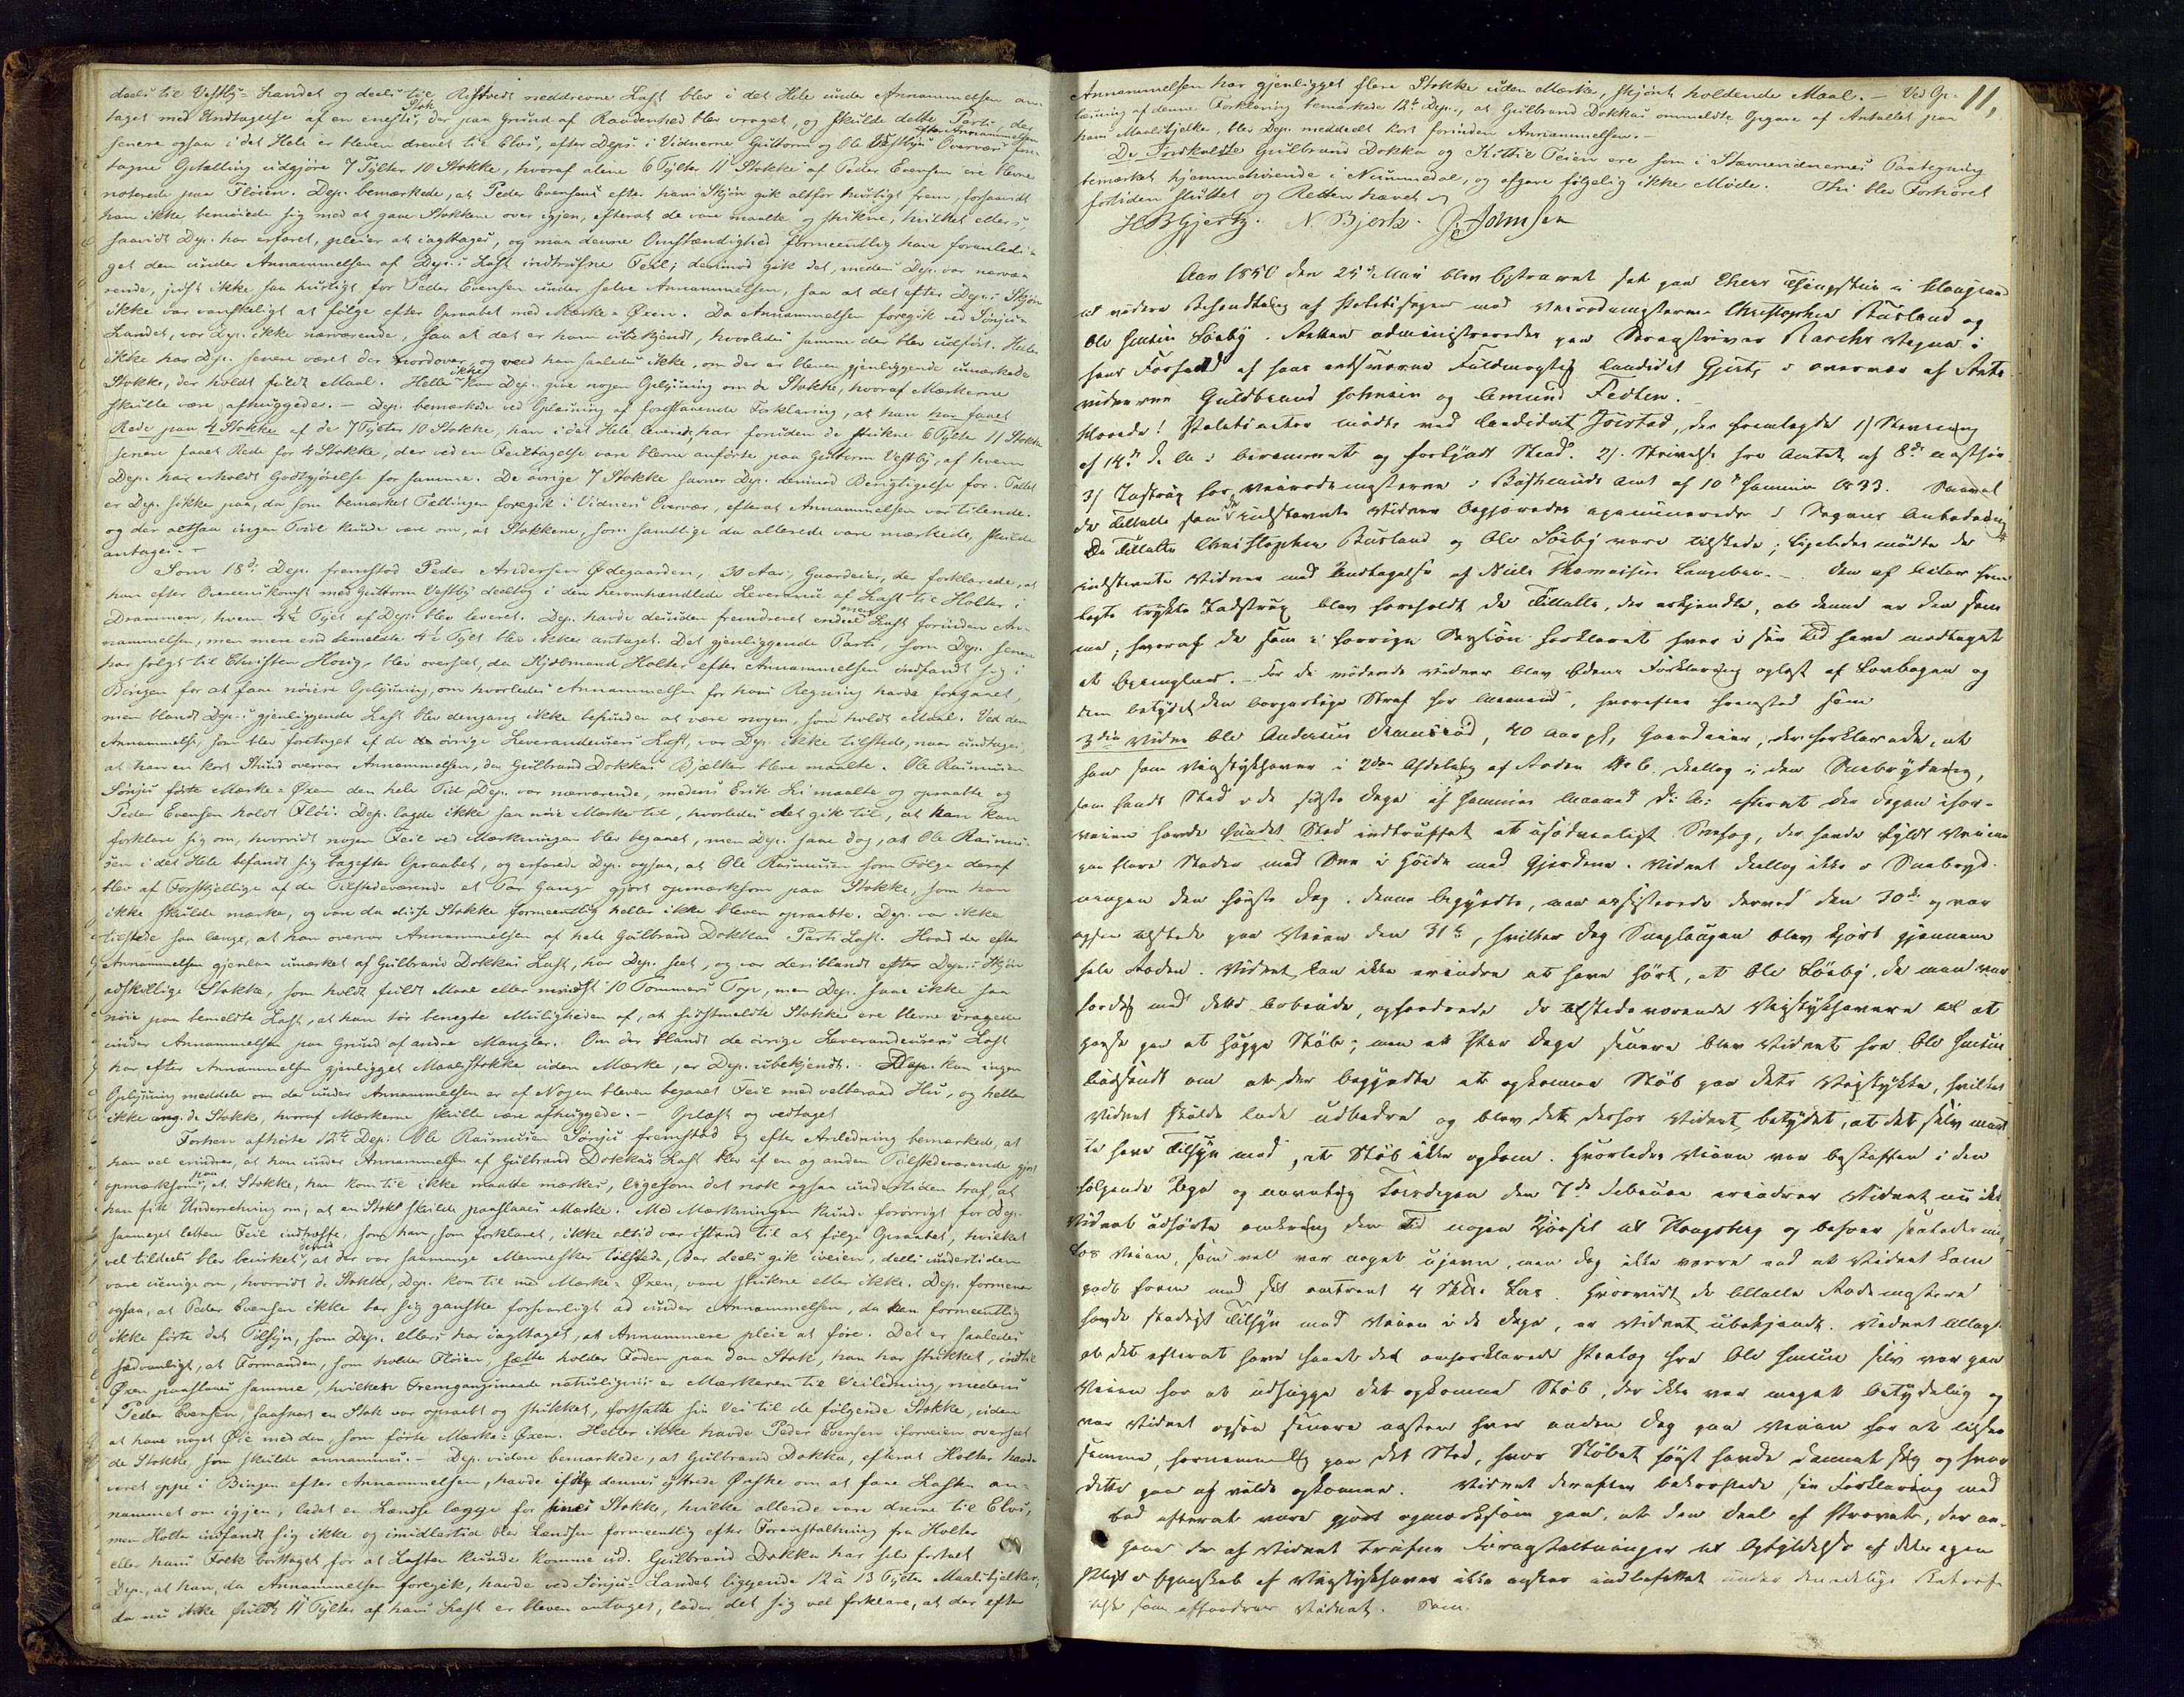 deels til Vestby-Landet og deels til Ristvedt neddrevne Last blev i det Hele under Annammelsen an-
taget med Undtagelse af en eneste Stok, der paa Grund af Raadenhed blev vraget, og skulde dette Parti, der
senere ogsaa i det Hele er bleven drevet til Elvs, efter Deps. i Vidnerne Guttorm og Ole Vestbys Overvær efter Annammelsen fore-
tagne Optælling udgjøre 7 Tylter 10 Stokke, hvoraf alene 6 Tylter 11 Stokke af Peder Evensen ere blevne
noterede paa Fløien. Dep. bemærkede, at Peder Evensen efter hans Skjøn gik altfor hurtigt frem, forsaavidt
han ikke bemøiede sig med at gaae Stokkene over igjen, efterat de vare maalte og stukne, hvilket ellers,
saavidt Dep. har erfaret, pleier at iagttages, og maa denne Omstændighed formeentlig have foranledi-
get den under Annammelsen af Dep.s Last indtrufne Feil; derimod gik det, medens Dep. var nærvæ-
rende, just ikke saa hurtigt for Peder Evensen under selve Annammelsen, saa at det efter Dep.s Skjøn
ikke var vanskeligt at følge efter Opraabet med Mærke-Øxen. Da Annammelsen foregik ved Sønju-
Landet, var Dep. ikke nærværende, saa at det er ham ubekjendt, hvorledes samme der blev udført. Heller
ikke har Dep. senere været der nordover, og veed han saaledes ikke, om der er bleven gjenliggende umærkede
Stokke, der holdt fuldt Maal. Heller ikke kan Dep. give nogen Oplysning om de Stokke, hvoraf Mærkerne
skulle være afhuggede. – Dep. bemærkede ved Oplæsning af forestaaende Forklaring, at han har faaet
Rede paa 4 Stokke af de 7 Tylter 10 Stokke, han i det Hele leverede, har foruden de stukne 6 Tylter 11 Stokke
senere faaet Rede for 4 Stokke, der ved en Feiltagelse vare blevne anførte paa Guttorm Vestby, af hvem
Dep. har erholdt Godtgjørelse for samme. De øvrige 7 Stokke savner Dep. derimod Berigtigelse for. Tallet
er Dep. sikker paa, da som bemærket Tællingen foregik i Vidners Overvær, efterat Annammelsen var tilende,
og der altsaa ingen Tvivl kunde være om, at Stokkene, som samtlige da allerede vare mærkede, skulde
antages. –
Som 18de Dep. fremstod Peder Andersen Ødegaarden, 30 Aar, Gaardeier, der forklarede, at
han efter Overeenskomst med Guttorm Vestby deeltog i den heromhandlede Leverance af Last til Holter i
Drammen, hvem 4½ Tylt af Dep. blev leveret. Dep. havde desuden fremdrevet endeel mere Last forinden An-
nammelsen, men mere end bemeldte 4½ Tylt blev ikke antaget. Det gjenliggende Parti, som Dep. senere
har solgt til Christen Hovig, blev overseet, da Kjøbmand Holter efter Annammelsen indfandt sig i
Bingen for at faae nøiere Oplysning, om hvorledes Annammelsen for hans Regning havde foregaaet,
men blandt Dep.s gjenliggende Last blev dengang ikke befunden at være nogen, som holdt Maal. Ved den
Annammelse, som blev foretaget af de øvrige Leverandeurers Last, var Dep. ikke tilstede, naar undtages,
at han en kort Stund overvar Annammelsen, da Gulbrand Dokkas Bjælker bleve maalte. Ole Rasmussen
Sønju førte Mærke-Øxen den hele Tid Dep. var nærværende, medens Erik Lie maalte og opraabte og
Peder Evensen holdt Fløi. Dep. lagde ikke saa nøie Mærke til, hvorledes det gik til, at han kan
forklare sig om, hvorvidt nogen Feil ved Mærkningen blev begaaet, men Dep. saae dog, at Ole Rasmus-
sen i det Hele befandt sig bagefter Opraabet, og erfarede Dep. ogsaa, at Ole Rasmussen som Følge deraf
blev af Forskjellige af de Tilstedeværende et Par Gange gjort opmærksom paa Stokke, som han
ikke skulde mærke, og vare da disse Stokke formeentlig heller ikke bleven opraabte. Dep. var ikke
tilstede saa længe, at han overvar Annammelsen af hele Gulbrand Dokkas Parti Last. Hvad der efter
Annammelsen gjenlaa umærket af Gulbrand Dokkas Last, har Dep. seet, og var deriblandt efter Dep.s Skjøn
adskillige Stokke, som holdt fuldt Maal eller mindst 10 Tommers Top, men Dep. saae ikke saa
nøie paa bemeldte Last, at han tør benegte Muligheden af, at sidstmeldte Stokke ere blevne vragede
under Annammelsen paa Grund af andre Mangler. Om der blandt de øvrige Leverandeurers Last
har efter Annammelsen gjenligget Maalsstokke uden Mærke, er Dep. ubekjendt. Dep. kan ingen
Oplysning meddele om der under Annammelsen er af Nogen bleven begaaet Feil med velberaad Hu, og heller
ikke ang. de Stokke, hvoraf Mærkerne skulle være afhuggede. – Oplæst og vedtaget
Forhen afhørte 12te Dep. Ole Rasmussen Sønju fremstod og efter Anledning bemærkede, at
han vel erindrer, at han under Annammelsen af Gulbrand Dokkas Last blev af en og anden Tilstedeværende gjort
opmærksom paa, at Stokke, han kom til ikke maatte mærkes, ligesom det nok ogsaa undertiden traf, at
han fik Underretning om, at en Stok skulde paaslaaes Mærke. Med Mærkningen kunde forøvrigt for Dep.
saameget lettere Feil indtræffe, som han, som forklaret, ikke altid var istand til at følge Opraabet, hvilket
vel tildeels blev bevirket derved, at der var saamange Mennesker tilstede, der deels gik iveien, deels undertiden
vare uenige om, hvorvidt de Stokke, Dep. kom til med Mærke-Øxen, vare stukne eller ikke. Dep. formener
ogsaa, at Peder Evensen ikke bar sig ganske forsvarligt ad under Annammelsen, da han formeentlig
ikke førte det Tilsyn, som Dep. ellers har iagttaget, at Annammere pleie at føre. Det er saaledes
sædvanligt, at Formanden, som holder Fløien, holder Foden paa den Stok, han har stukket, indtil
Øxen paaslaaes samme, hvilken Fremgangsmaade naturligviis er Mærkeren til Veiledning, medens
Peder Evensen, saasnart en Stok var opraabt og stukket, fortsatte sin Vei til de følgende Stokke, uden
at have noget Øie med den, som førte Mærke-Øxen. Heller ikke havde Peder Evensen iforveien overseet
de Stokke, som skulde annammes. – Dep. videre bemærkede, at Gulbrand Dokka, efterat Holter havde
været oppe i Bingen efter Annammelsen, havde ifølge dennes yttrede Ønske om at faae Lasten an-
nammet om igjen, ladet en Lændse lægge for sine Stokke, hvilke allerede vare drevne til Elvs,
men Holter indfandt sig ikke og imidlertid blev Lændsen formeentlig efter Foranstaltning fra Holter
eller hans Folk borttaget for at Lasten kunde komme ud. Gulbrand Dokka har selv fortalt
Dep., at han, da Annammelsen foregik, havde ved Sønju-Landet liggende 12 à 13 Tylter Maalsbjelker,
da nu ikke fuldt 11 Tylter af hans Last er bleven antaget, lader det sig vel forklare, at der efter
11,
Annammelsen har gjenligget flere Stokke uden Mærke, skjønt holdende Maal. – Ved Op-
læsning af denne Forklaring bemærkede 12te Dep., at Gulbrand Dokkas ommeldte Opgave af Antallet paa
hans Maalsbjelker, blev Dep. meddeelt kort forinden Annammelsen. –
De Indkaldte Gulbrand Dokka og Kittil Teien ere som i Stævnevidnernes Paategning
bemærket hjemmehørende i Nummedal, og afgave følgelig ikke Møde. Thi blev Forhøret
fortiden sluttet og Retten hævet
HB Gjertz. N. Bjerke. G. Jamsen
Aar 1850 den 25de Mai blev Extraret sat paa Thingstuen i Kongsberg
til videre Behandling af Politisagen mod Veirodemesterne Christopher Rusland og
Ole Hansen Søeby. Retten administreredes paa Sorenskriver Raschs Vegne i
hans Forfald af hans edsvorne Fuldmægtig Candidat Gjertz i overvær af Rets-
vidnerne Guldbrand Johnsen og Amund Tedten.
Hvorda! Politiactor mødte ved Candidat Joestad, der fremlagde 1) Stevning
af 14de d. M. i beramment og forkyndt Stand. 2) Skrivelse fra Amtet af 8de næstfør.
3) Instrux for Veirodemesterne i Buskeruds Amt af 10de Januar 1833. Saavel
de Tiltalte som de indstevnte Vidner begjæredes examinerede i Sagens Anledning
De Tiltalte Christopher Rusland og Ole Søeby vare tilstede; ligeledes mødte de
indstevnte Vidner med Undtagelse af Niels Thomassen Langebro. – Den af Actor frem-
lagte trykte Instrux blev foreholdt de Tiltalte, der erkjendte, at denne er den sam-
me, hvoraf de som i forrige Session forklaret hver i sin Tid have modtaget
et Exemplar. – For de mødende Vidner blev Edens Forklaring oplæst af Lovbogen og
dem betydet den borgerlige Straf for Meeneed, hvorefter fremstod som
3die Vidne Ole Andersen, 40 Aar gl, Gaardeier, der forklarede, at
han som Veistykhaver i 2den Afdeling af Roden No 6 deeltog i den Sneebrydning,
som fandt Sted i de sidste Dage af Januar Maaned d: A: efterat der Dagen ifor-
veien havde indtruffet et usædvanligt Sneefog, der havde fyldt Veien
paa flere Steder med Snee i Høide med Gjerdene. Vidnet deeltog ikke i Sneebryd-
ningen den første Dag denne begyndte, men assisterede derved den 30de og var
ogsaa tilstede paa Veien den 31te, hvilken Dag Sneeplougen blev kjørt gjennem
hele Roden. Vidnet kan ikke erindre at have hørt, at Ole Søeby, da man var
færdig med dette Arbeide, opfordrede de tilstedeværende Veistykhavere til at
passe paa at hugge Støb; men et Par Dage senere blev Vidnet fra Ole Hansen
budsendt om at der begyndte at opkomme Støb paa dets Veistykke, hvilket
Vidnet skulde lade udbedre og blev det derfor Vidnet betydet, at det selv maat-
te have Tilsyn med, at Støb ikke opkom. Hvorledes Veien var beskaffen i den
følgende Uge og navnlig Torsdagen den 7de Februar erindrer Vidnet nu ikke
Vidnet udførte omkring den Tid nogen Kjørsel til Kongsberg og befoer saaledes
Veien, som vel var noget ujævn, men dog ikke værre end at Vidnet kom
godt frem med sit omtrent 4 Læs. Hvorvidt de tiltalte Rodemestere
havde stadigt Tilsyn med Veien i de Dage, er Vidnet ubekjendt. Vidnet tillagde
at det efterat have faaet det omforklarede Paalæg fra Ole Hansen selv var paa
Veien for at udhugge det opkomne Støb, der ikke var meget betydelig og
var Vidnet ogsaa senere næsten hver anden Dag paa Veien for at eftersee
samme, fornemmelig paa det Sted, hvor Støbet først havde dannet sig og hvor
dette paa ny vilde opkomme. Vidnet derefter bekræftede sin Forklaring med
Eed efterat være gjort opmærksom paa, at den Deel af Prøvet, der an-
gaaer de af Vidnet trufne Foranstaltninger til Opfyldelse af dets egen
Pligt i Egenskab af Veistykhaver ikke ansees indbefattet under den edelige Bekræf-
telse som affordres Vidnet. Som